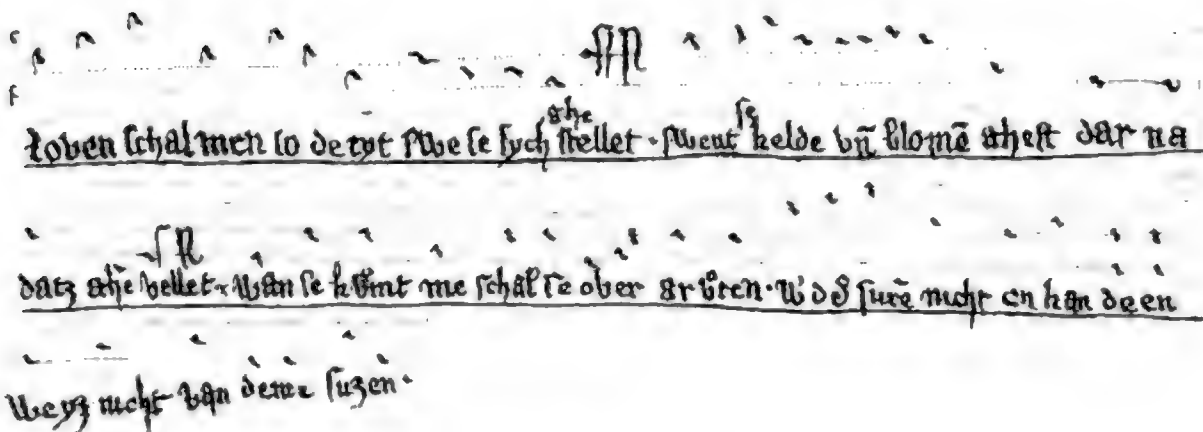 loven schal men so de tyt swe se sych ghe stellet · swent se kelde vn̄ blomē ghest dar na
datz ghē vellet · wan se kůmt me schal se over grůten · w d nicht en han de en
weyz nicht van deme suzen ·